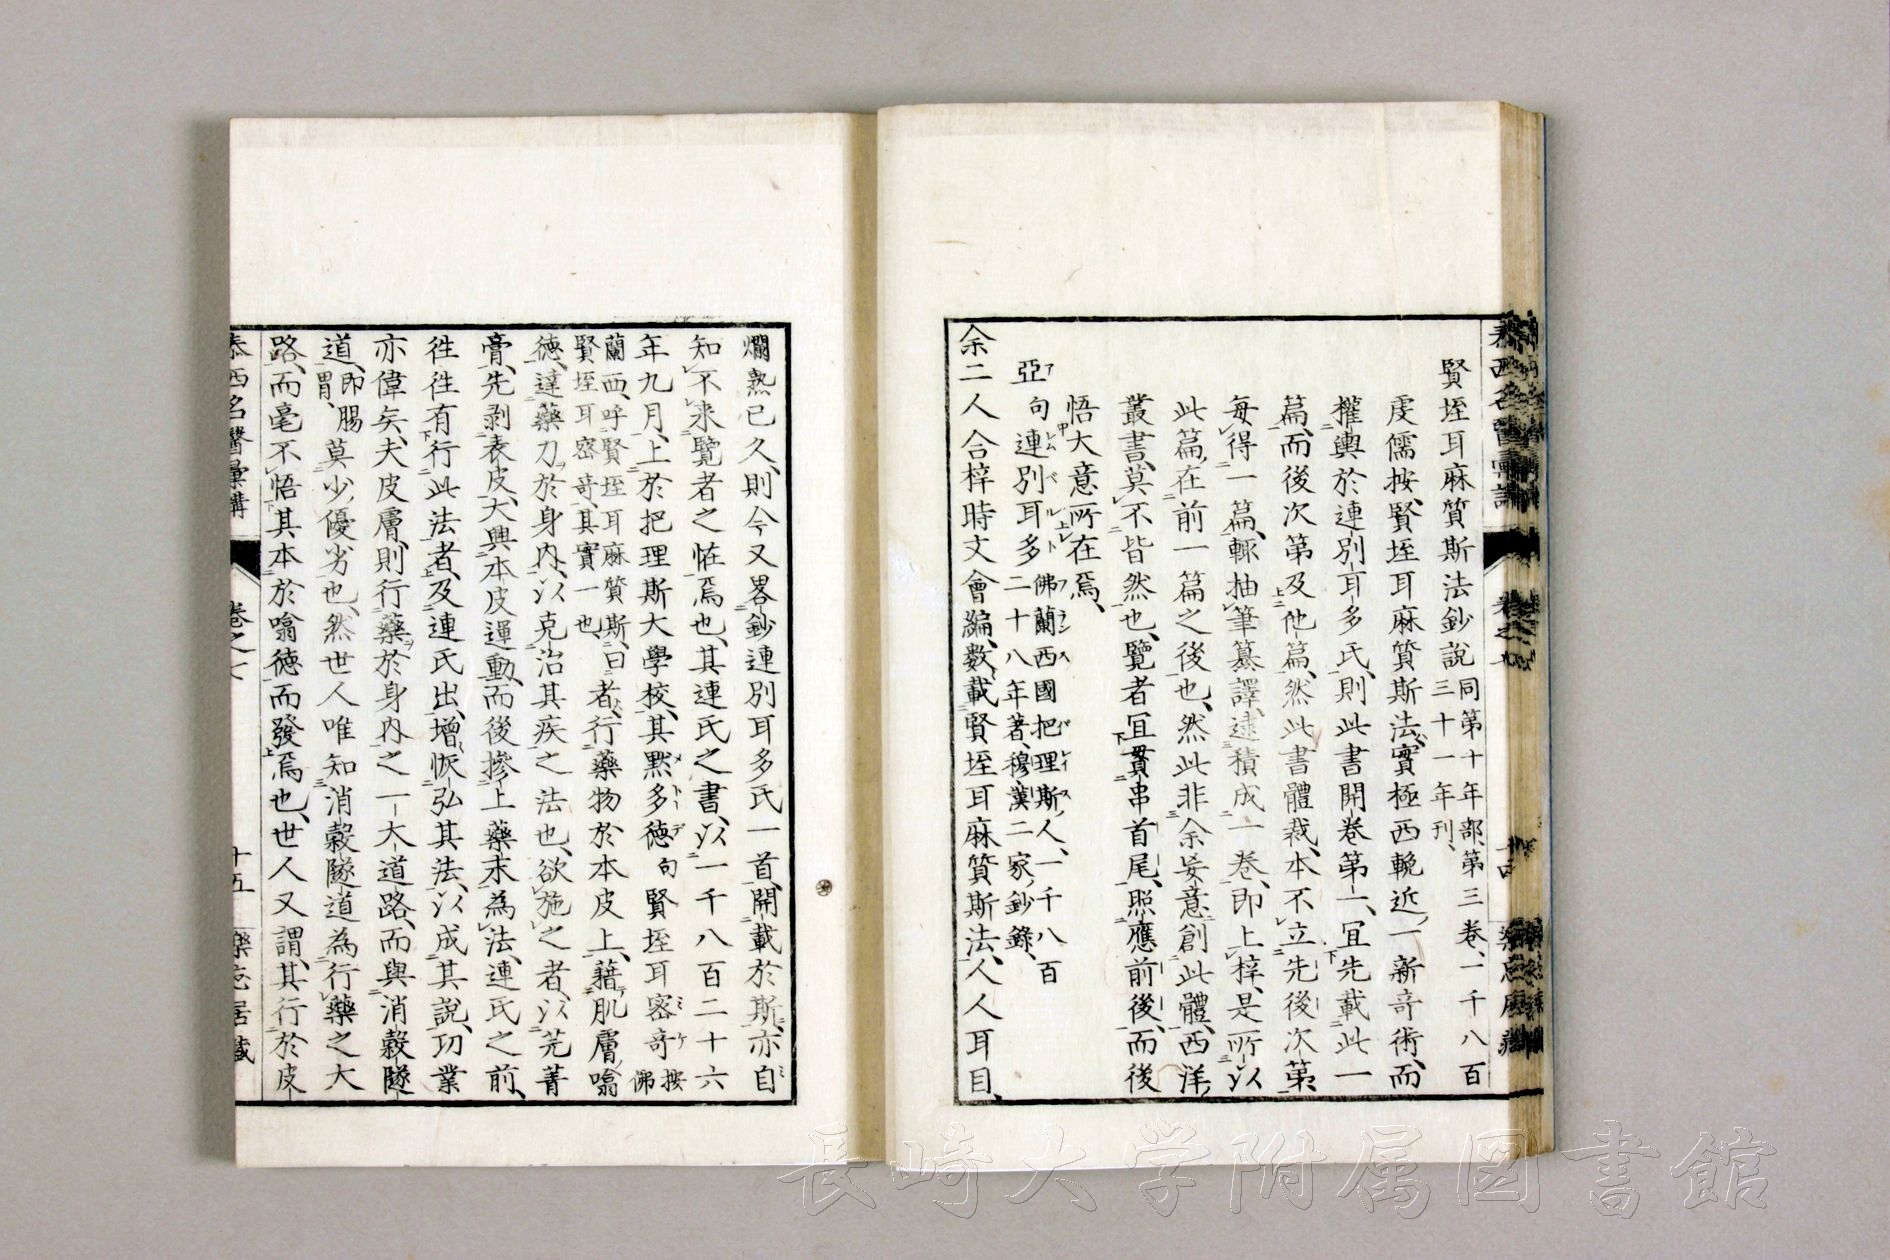 賢垤耳麻質斯法鈔說同第十年部、第三卷、一千八百三十一年刊、
虔儒按、賢垤耳麻質斯法、實極西輓近一新奇術、而
權輿於連別耳多氏、則此書開卷第一、冝先載此一
篇、而後次第及他篇、然此書體裁、本不立先後次第、
每得一篇、輙抽筆纂譯、逮積成一卷、即上梓、是所以
此篇在前一篇之後也、然此非余妄意創此體、西洋
叢書、莫不皆然也、覽者冝貫串首尾、照應前後、而後
悟大意所在焉、
亞句連別耳多佛蘭西國把理斯人、一千八百二十八年著、穆漢二家鈔錄、
余二人合梓時文會編、數載賢垤耳麻質斯法、人人耳目、
爛熟已久、則今又畧鈔連別耳多氏一首、開載於斯、亦自
知不來覽者之恠焉也、其連氏之書、以一千八百二十六
年九月、上於把理斯大學校、其默多德句賢垤耳密奇按佛
蘭西、呼賢垤耳麻質斯、曰賢垤耳密奇、其實一也、者、行藥物於本皮上、藉肌膚噏
德、達藥刀於身內、以克治其疾之法也、欲施之者、以芫菁
膏、先剥表皮、大興本皮運動、而後摻上藥末為法、連氏之前、
徃徃有行此法者、及連氏出、增恢弘其法、以成其說、功業
亦偉矣、夫皮膚、則行藥於身內之一大道路、而與消穀隧
道、即腸胃、莫少優劣也、然世人唯知消穀隧道為行藥之大
路、而毫不悟其本於噏德而發焉也、世人又謂、其行於皮
泰西名醫彙講
卷之七
十五
樂忘居藏
長崎大学附属図書館